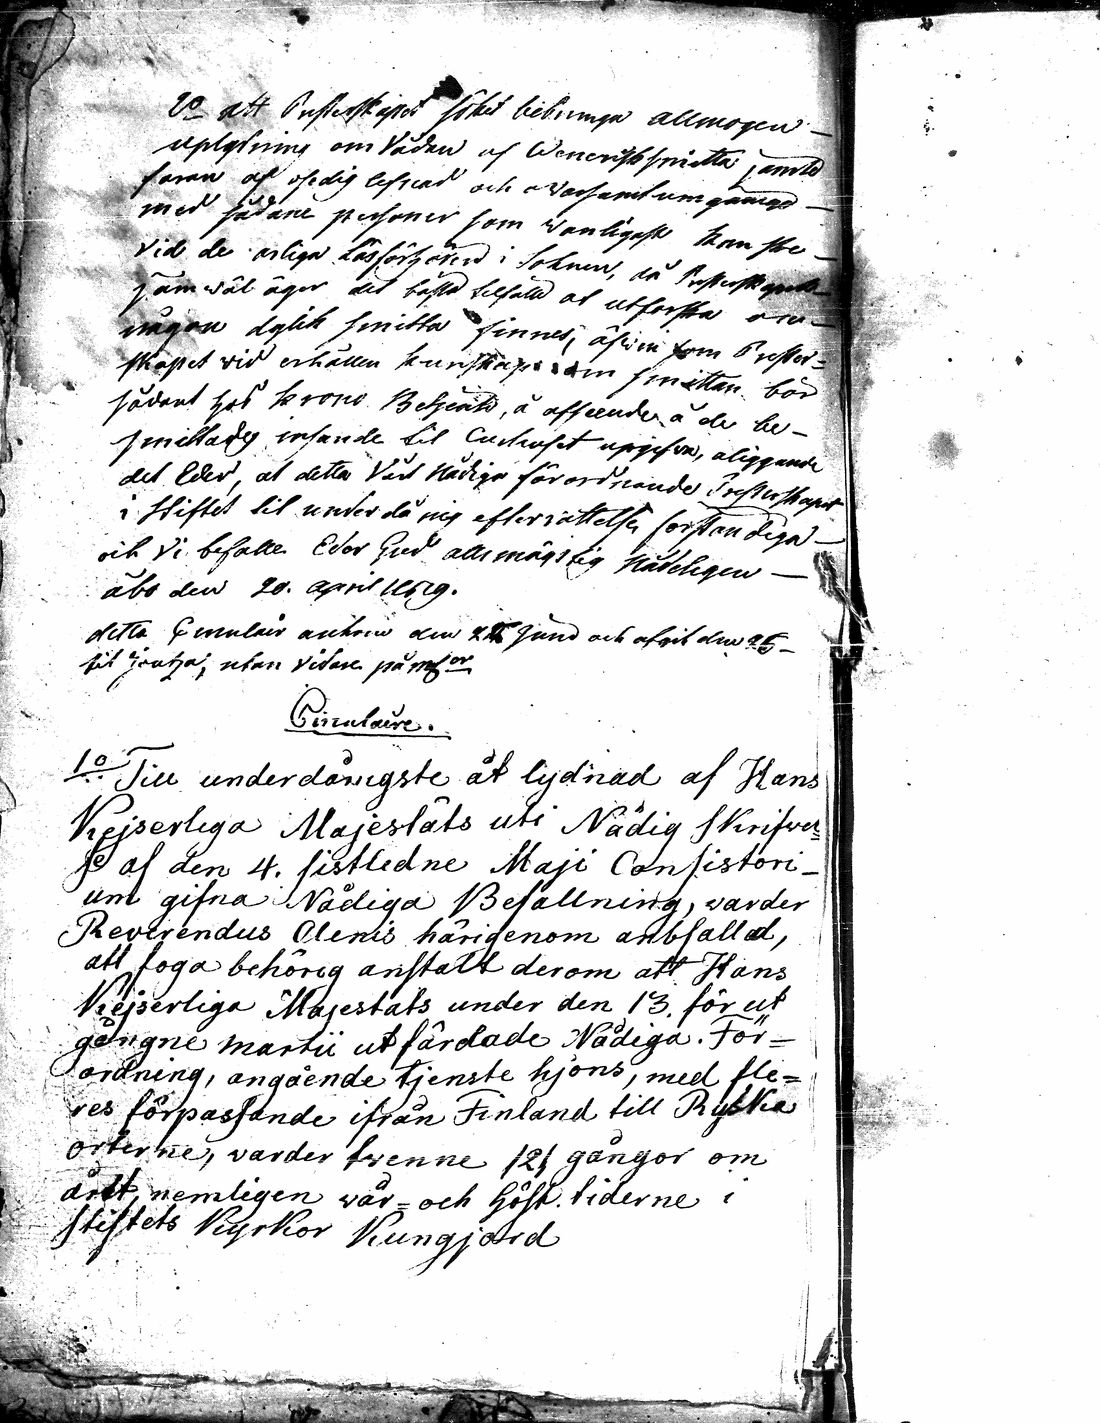 2o att Presterskapet söker bibringa allmogen
uplysning om Vådan af Venerisk smitta jemte
faran af osedig lefnad och owarsamt umgänge
med sådane personer som wanligast kan ske
vid de årliga Läsförhören i Soknen, då Presterskapet
jämwäl äger det bästa tilfälle at utforska om
någon dylik smitta finnes, äfwen som Prester=
skapet wid erhållen kunskap om smittan bör
sådant hos Krono Betjente, å afseende å de be-
smittades insande til Curhuset upgifwa, åliggande
det Eder, at detta Vårt Nådiga förordnande Presterskapet
i Stiftet til underdånig efterrättelse
och Vi befalle Eder Gud allsmägtig Nådeligen
Åbo den 20. April 1819.
detta Circulair ankom den Juni och afgick den 25
til utan Vidare påminnelse
Circulaire.
1o Till underdånigste åt lydnad af Hans
Kejserliga Majestäts uti Nådig skrifwel=
se af den 4. sistledne Maji Consistori-
um gifna Nådiga Befallning, warder
Reverendus Clerus härigenom anbefalld,
att foga behörig anstalt derom att Hans
Kejserliga Majestäts under den 13. för ut
gångne martii utfärdade Nådiga För=
ordning, angående tjenste hjons, med fle=
res förpassande ifrån Finland till Ryska
orterne, varder twenne /2/ gångor om
året, nemligen wår= och Höst tiderne i
Stiftets Kyrkor Kungjord